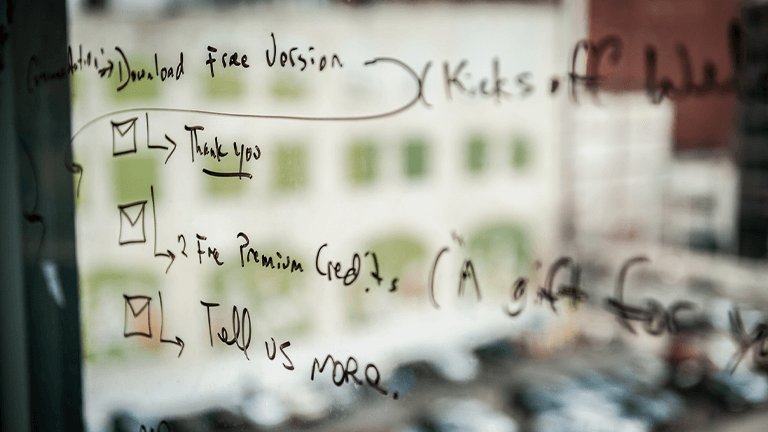 Download Free Version (Kicks off
Thank you
2 Free Premium Credits ("A gift for
Tell us more.